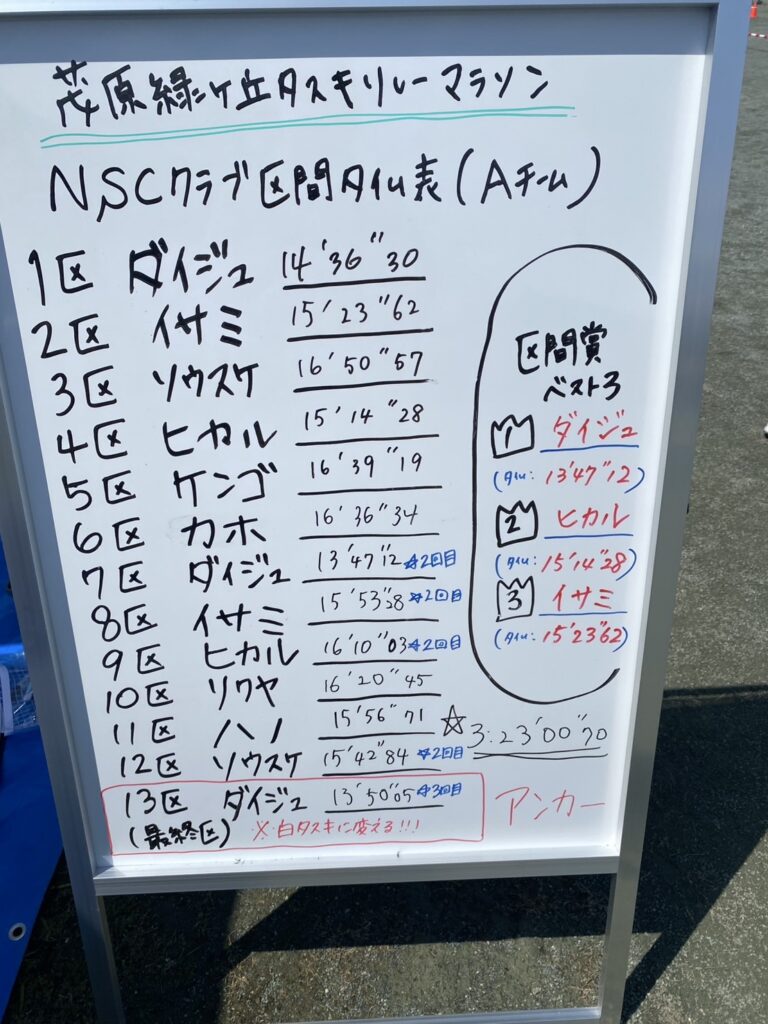 茂原緑ヶ丘タスキリレーマラソン
NSCクラブ区間タイム表(Aチーム)
1区 ダイジュ 14'36"30
2区 イサミ 15'23"62
3区 ソウスケ 16'50"57
4区 ヒカル 15'14"28
5区 ケンゴ 16'39"19
6区 カホ 16'36"34
7区 ダイジュ 13'47"12 ☆2回目
8区 イサミ 15'53"28 ☆2回目
9区 ヒカル 16'10"03 ☆2回目
10区 リクヤ 16'20"45
11区 ハノ 15'56"71
12区 ソウスケ 15'42"84 ☆2回目
13区 ダイジュ 13'50"05 ☆3回目
(最終区) ※白タスキに変える!!!
区間賞
ベスト3
1 ダイジュ
(タイム: 13'47"12)
2 ヒカル
(タイム: 15'14"28)
3 イサミ
(タイム: 15'23"62)
☆3:23'00"70
アンカー